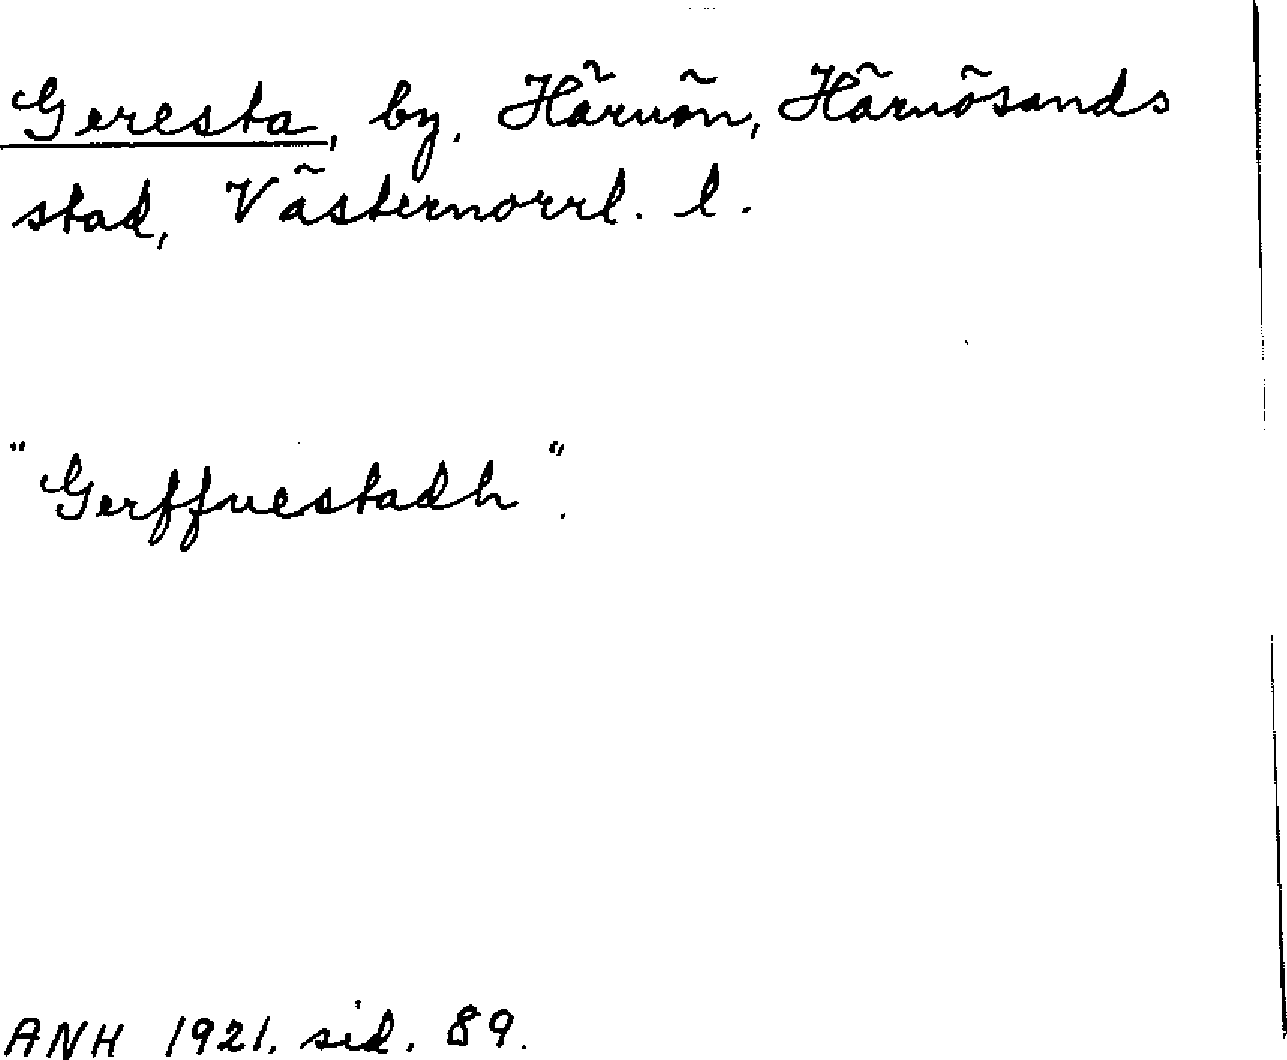 Geresta, by. Härnön, Härnösands
stad, Västernorrl. l.
"Gerffuestadh".
ANH 1921. sid. 89.